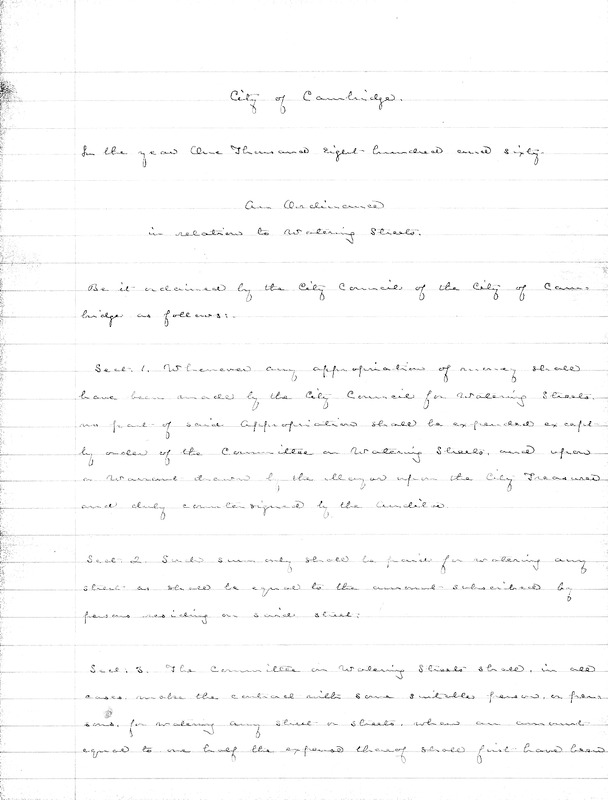 City of Cambridge.
In the year One Thousand Eight hundred and sixty
An Ordinance
in relation to Watering Streets.
Be it ordained by the City Council of the City of Cam-
bridge as follows:
Sect. 1. Whenever any appropriation of money shall
have been made by the City Council for Watering Streets,
no part of said Appropriation shall be expended except
by order of the Committee on Watering Streets, and upon
a Warrant drawn by the Mayor upon the City Treasurer
and duly countersigned by the Auditor
Sect. 2. Such sum only shall be paid for watering any
street as shall be equal to the amount subscribed by
persons residing on said street:
Sect. 3. The Committee on Watering Streets shall, in all
cases, make the contract with some suitable person, or per-
sons, for watering any street or streets, when an amount
equal to one half the expense thereof shall first have been